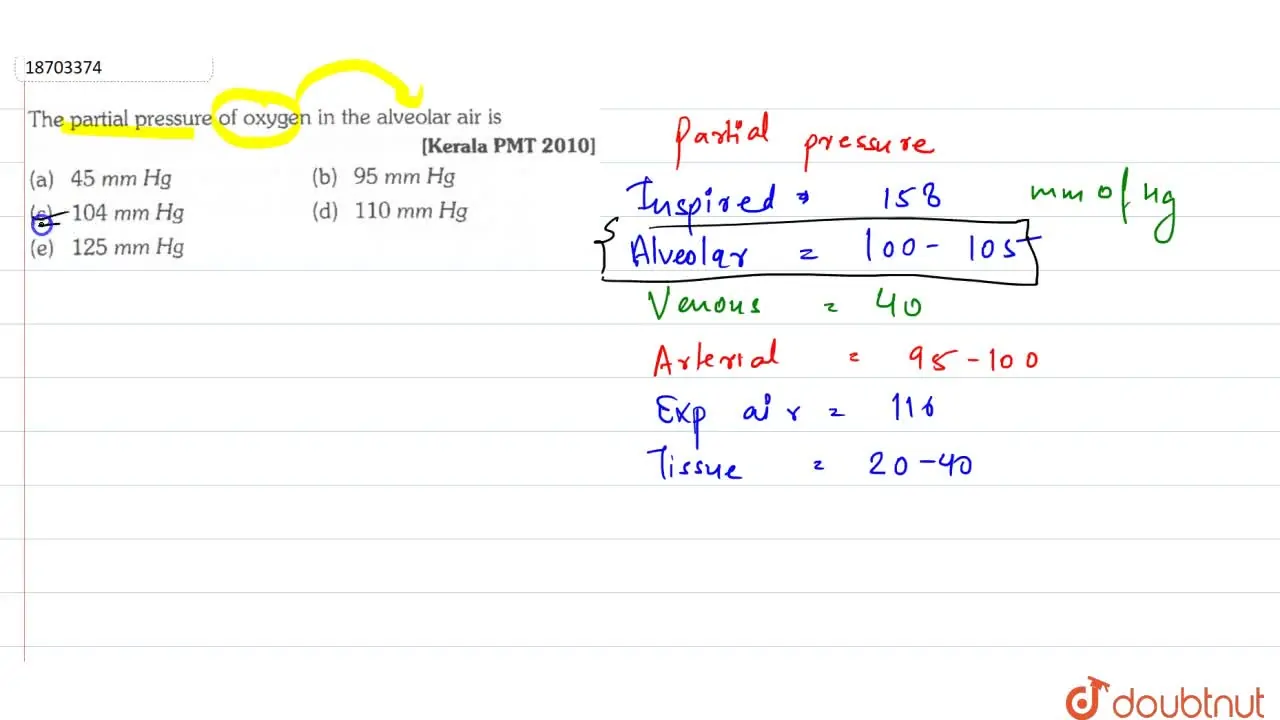 18703374
The partial pressure of oxygen in the alveolar air is
[Kerala PMT 2010]
(a) 45 mm Hg (b) 95 mm Hg
(c) 104 mm Hg (d) 110 mm Hg
(e) 125 mm Hg
Partial pressure
Inspired = 158 mm of Hg
Alveolar = 100 - 105
Venous = 40
Arterial = 95 - 100
Exp air = 116
Tissue = 20 - 40
doubtnut